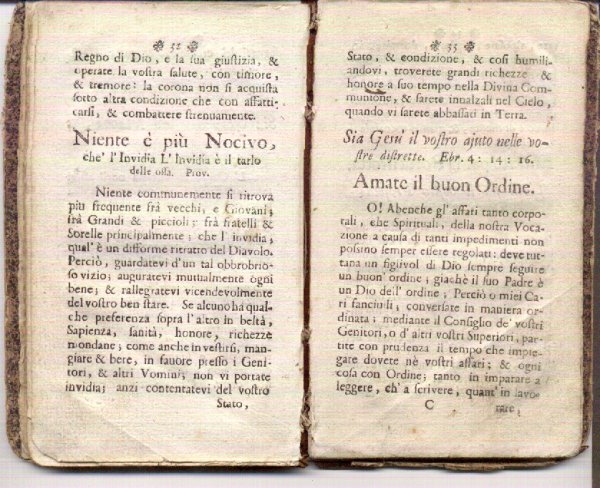 52
Regno di Dio, e la sua giustizia, &
operate la vostra salute, con timore,
& tremore: la corona non si acquista
sotto altra condizione che con affatti-
carsi, & combattere strenuamente.
Niente è più Nocivo,
che' l'Invidia L' Invidia è il tarlo
delle ossa. Prov.
Niente communemente si ritrova
più frequente frà vecchi, e Giovani;
frà Grandi & piccioli; frà fratelli &
Sorelle principalmente; che l' invidia;
qual' è un difforme ritratto del Diavolo.
Perciò, guardatevi d'un tal obbrobrio-
so vizio; auguratevi mutualmente ogni
bene; & rallegratevi vicendevolmente
del vostro ben stare. Se alcuno ha qual-
che preferenza sopra l'altro in beltà,
Sapienza, sanità, honore, richezze
mondane; come anch in vestirsi, man-
giare & bere, in favore presso i Geni-
tori, & altri Vomini; non vi portate
invidia; anzi contentatevi del vostro
Stato,
33
Stato, & condizione, & così humili-
andovi, troverete grandi richezze &
honore a suo tempo nella Divina Com-
munione, & sarete innalzati nel Cielo,
quando vi sarete abbassati in Terra.
Sia Gesu' il vostro ajuto nelle vo-
stre distrette. Ebr. 4: 14: 16.
Amate il buon Ordine.
O! Abenche gl' affari tanto corpo-
rali, che Spirituali, della nostra Voca-
zione a causa di tanti impedimenti non
possino semper essere regolati: deve tut-
tana un figlivol di Dio sempre seguire
un buon' ordine; giachè il suo Padre è
un Dio dell' ordine; Perciò o miei Ca-
ri fanciulli, conversate in maniera or-
dinata: mediante il Consiglio de' vostri
Genitori, o d' altri vostri Superiori, par-
tite con prudenza il tempo che impie-
gare dovete nè vostri affari; & ogni
cosa con Ordine; tanto in imparare a
leggere, ch' a scrivere, quant' in lavo-
C rare,